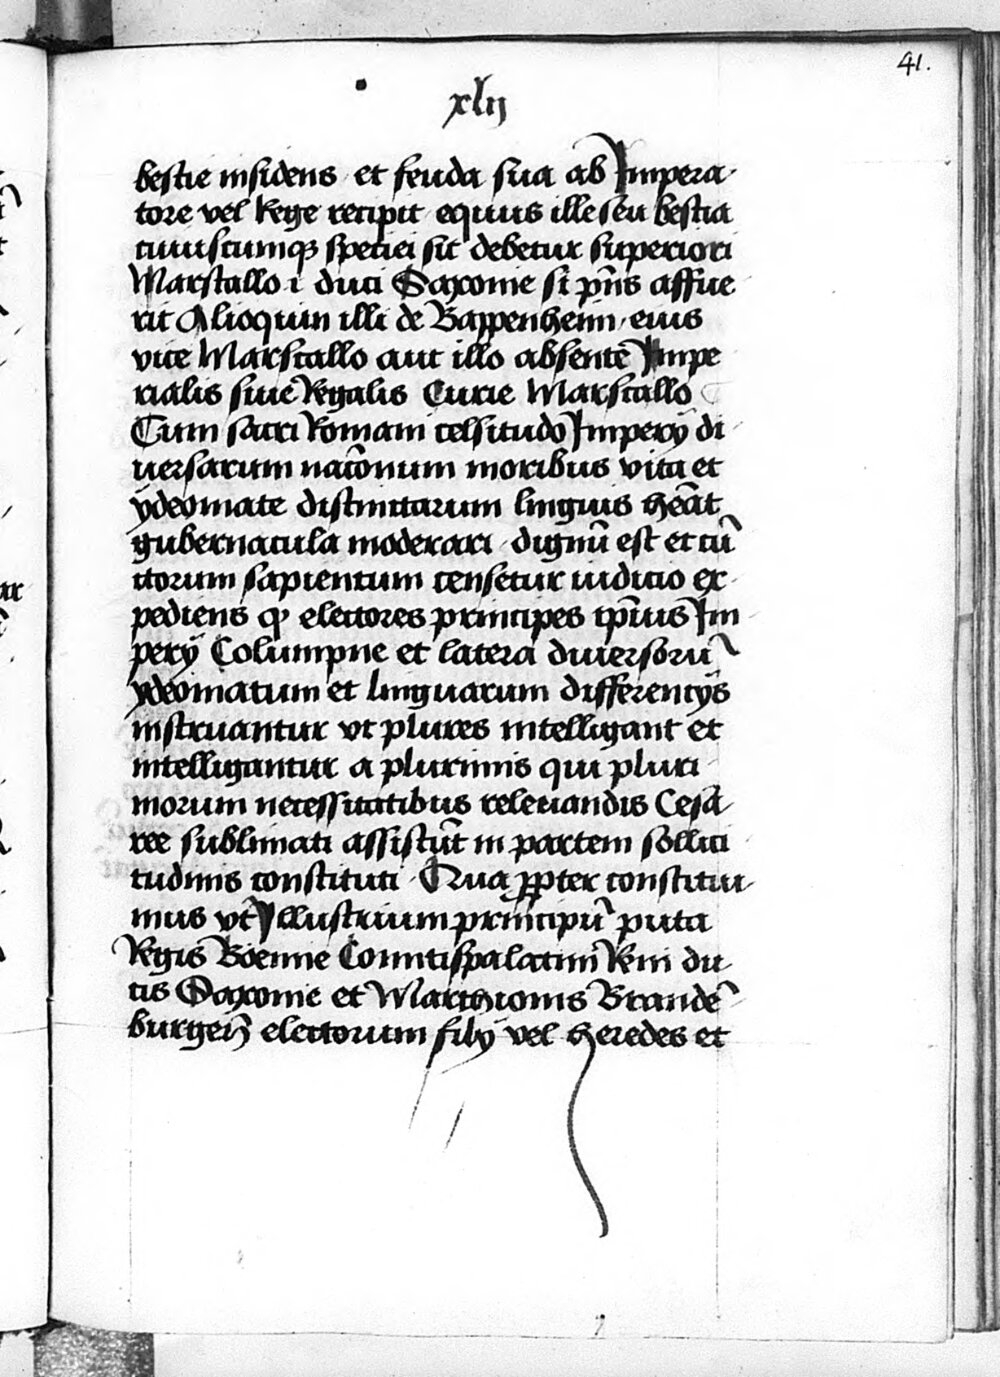 41.
xlij
bestie insidens et feuda sua ab Impera
tore vel Rege recipit equus ille seu bestia
cuiuscumqꝫ speciei sit debetur superiori
Marscallo i duci Saxonie si pn̄s affue
rit Alioquin illi de Bappenheim eius
vice Marscallo aut illo absente Impe
rialis siue Regalis Curie Marscallo
Cum sacri Romani celsitudo Imperij di
uersarum nac̄onum moribus vita et
ÿdeomate distinctarum linguis heāt
gubernacula moderari dignū est et cū
ctorum sapientum censetur iudicio ex
pediens ꝙ electores principes ip̄ius Im
perij Columpne et latera diuersorū
ydeomatum et linguarum differencijs
instruantur vt plures intelligant et
intelligantur a plurimis qui pluri
morum necessitatibus releuandis Cesa
ree sublimati assistūt in partem sollici
tudinis constituti Qua ꝓpter constitui
mus vt Illustrium principū puta
Regis Boemie Comitispalatini Reni du
cis Saxonie et Marchionis Brande
burgeñ electorum filij vel heredes et